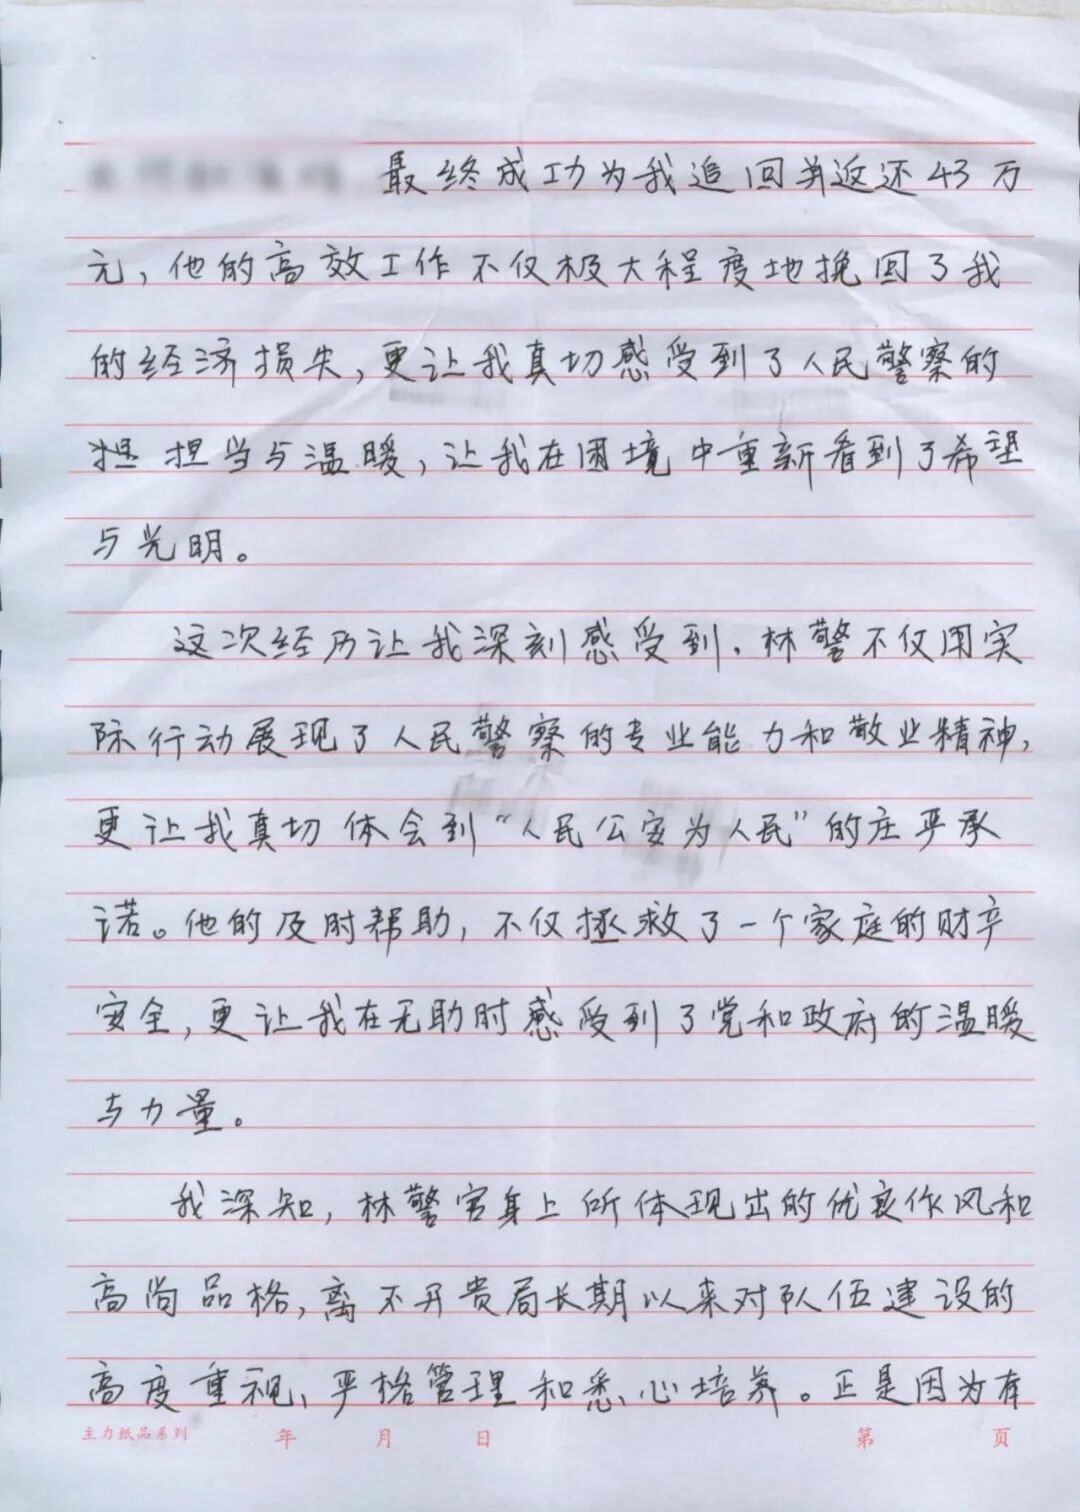 最终成功为我追回并返还43万
元，他的高效工作不仅极大程度地挽回了我
的经济损失，更让我真切感受到了人民警察的
担当与温暖，让我在困境中重新看到了希望
与光明。
这次经历让我深刻感受到，林警不仅用实
际行动展现了人民警察的专业能力和敬业精神，
更让我真切体会到“人民公安为人民”的庄严承
诺。他的及时帮助，不仅拯救了一个家庭的财产
安全，更让我在无助时感受到了党和政府的温暖
与力量。
我深知，林警官身上所体现出的优良作风和
高尚品格，离不开贵局长期以来对队伍建设的
高度重视、严格管理和悉心培养。正是因为有
主力纸品系列 年 月 日 第 页